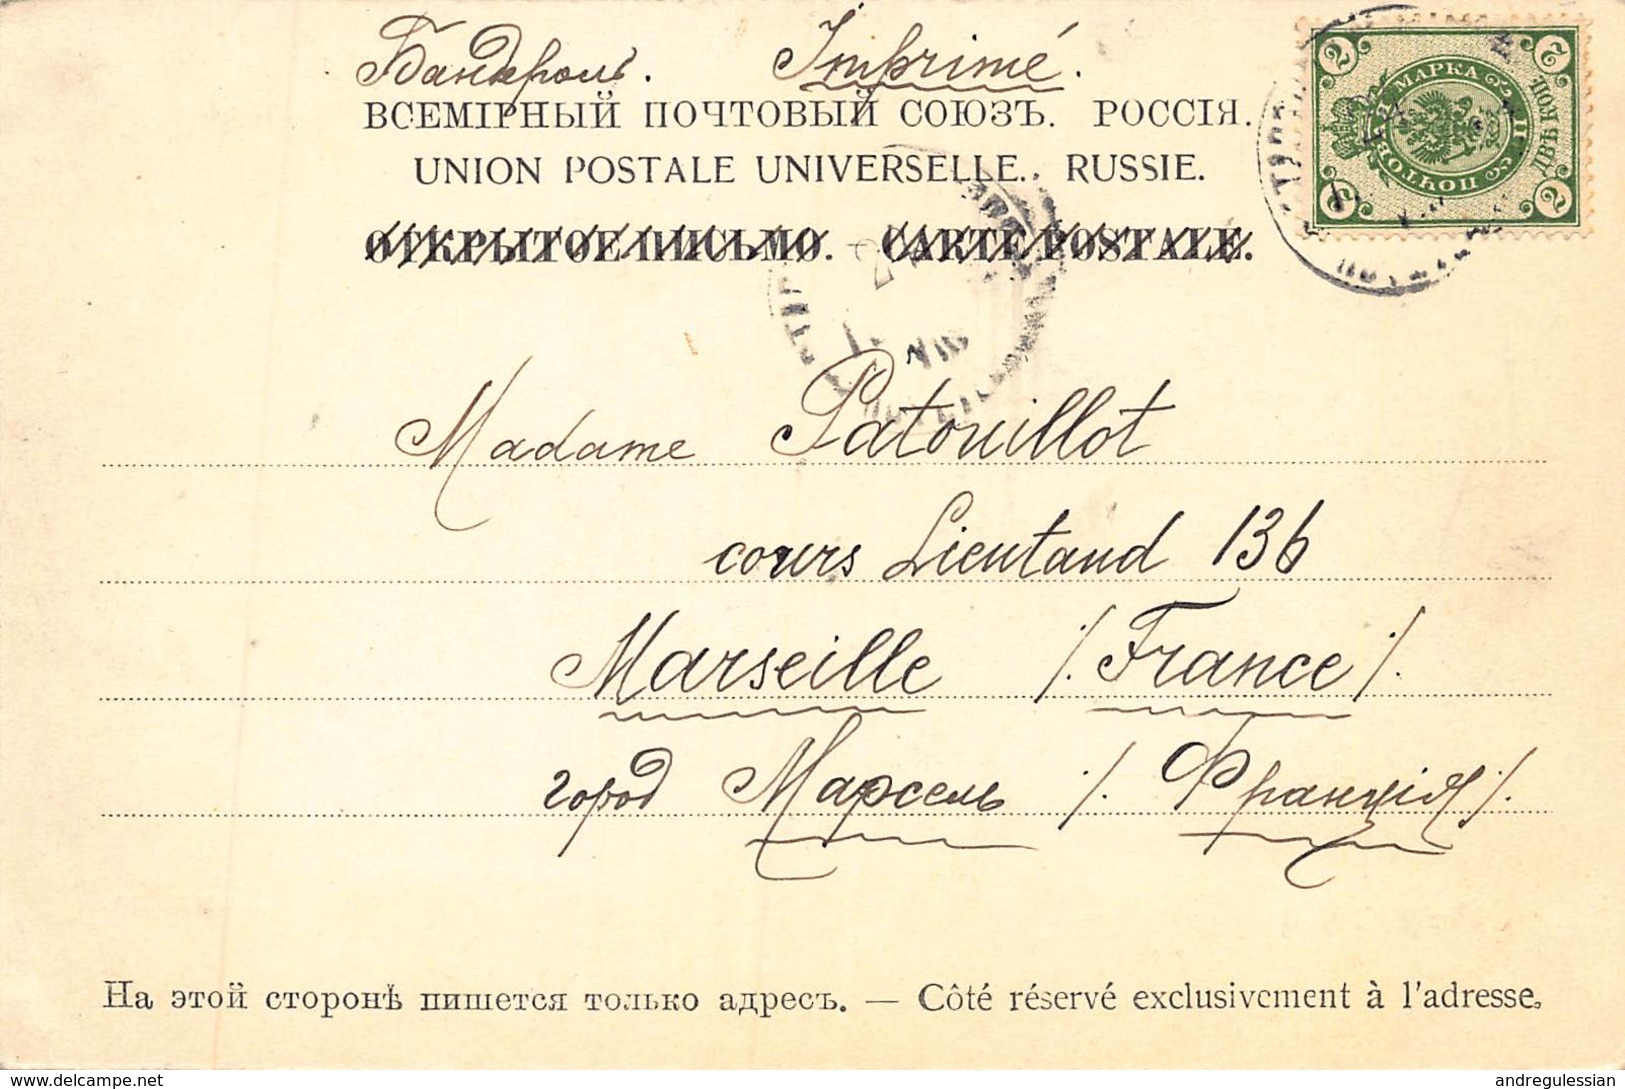 Бандероль. Imprimé.
ВСЕМІРНЫЙ ПОЧТОВЫЙ СОЮЗЪ. РОССІЯ.
UNION POSTALE UNIVERSELLE. RUSSIE.
ОТКРЫТОЕ ПИСЬМО. — CARTE POSTALE.
2 2 2 2
ПОЧТОВАЯ МАРКА
ДВѢ КОП.
Madame Patouillot
cours Lieutaud 136
Marseille /. France /.
город Марсель /. Францiя /.
На этой сторонѣ пишется только адресъ. — Côté réservé exclusivement à l'adresse.
https://www.delcampe.net
andregulessian